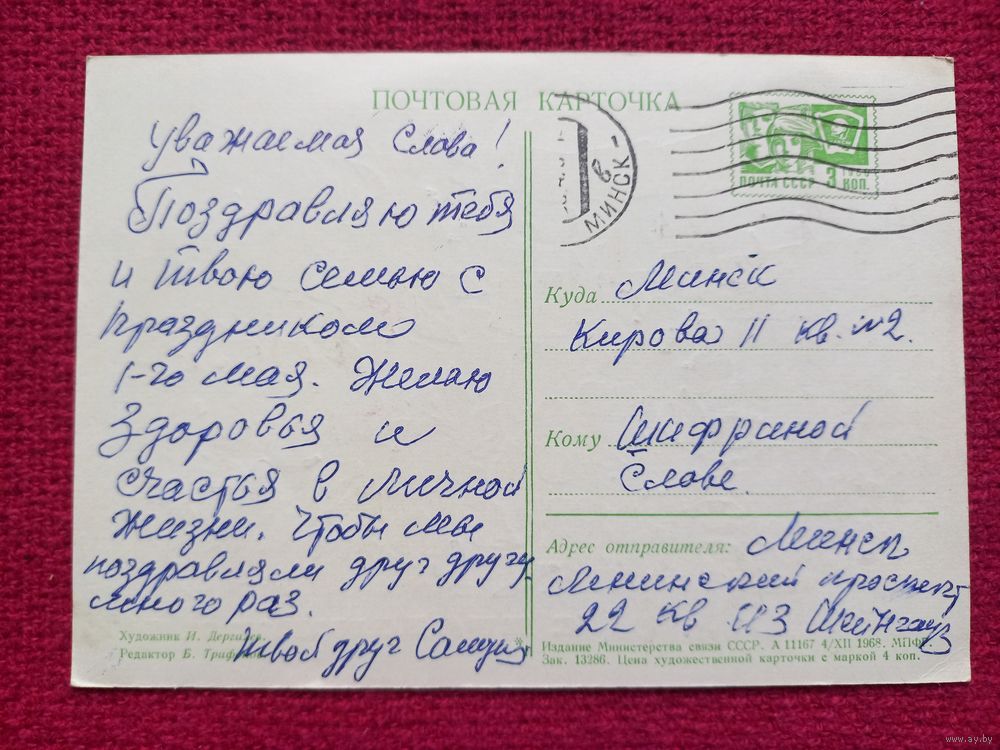 ПОЧТОВАЯ КАРТОЧКА
Уважаемая Слава!
Поздравляю тебя
и твою семью с
праздником
1-го мая. Желаю
здоровья и
счастья в личной
жизни. Чтобы мы
поздравляли друг другу
много раз.
Твой друг
Художник И. Дергилев
Редактор Б.
МИНСК
в
ПОЧТА СССР 3 КОП.
Куда Минск
Кирова 11 кв. №2.
Кому Шифриной
Славе.
Адрес отправителя: Минск
Ленинский проспект
22 кв 113 Шейнгауз
Издание Министерства связи СССР. А 11167 4/XII 1968. МПФГ.
Зак. 13286. Цена художественной карточки с маркой 4 коп.
www.ay.by